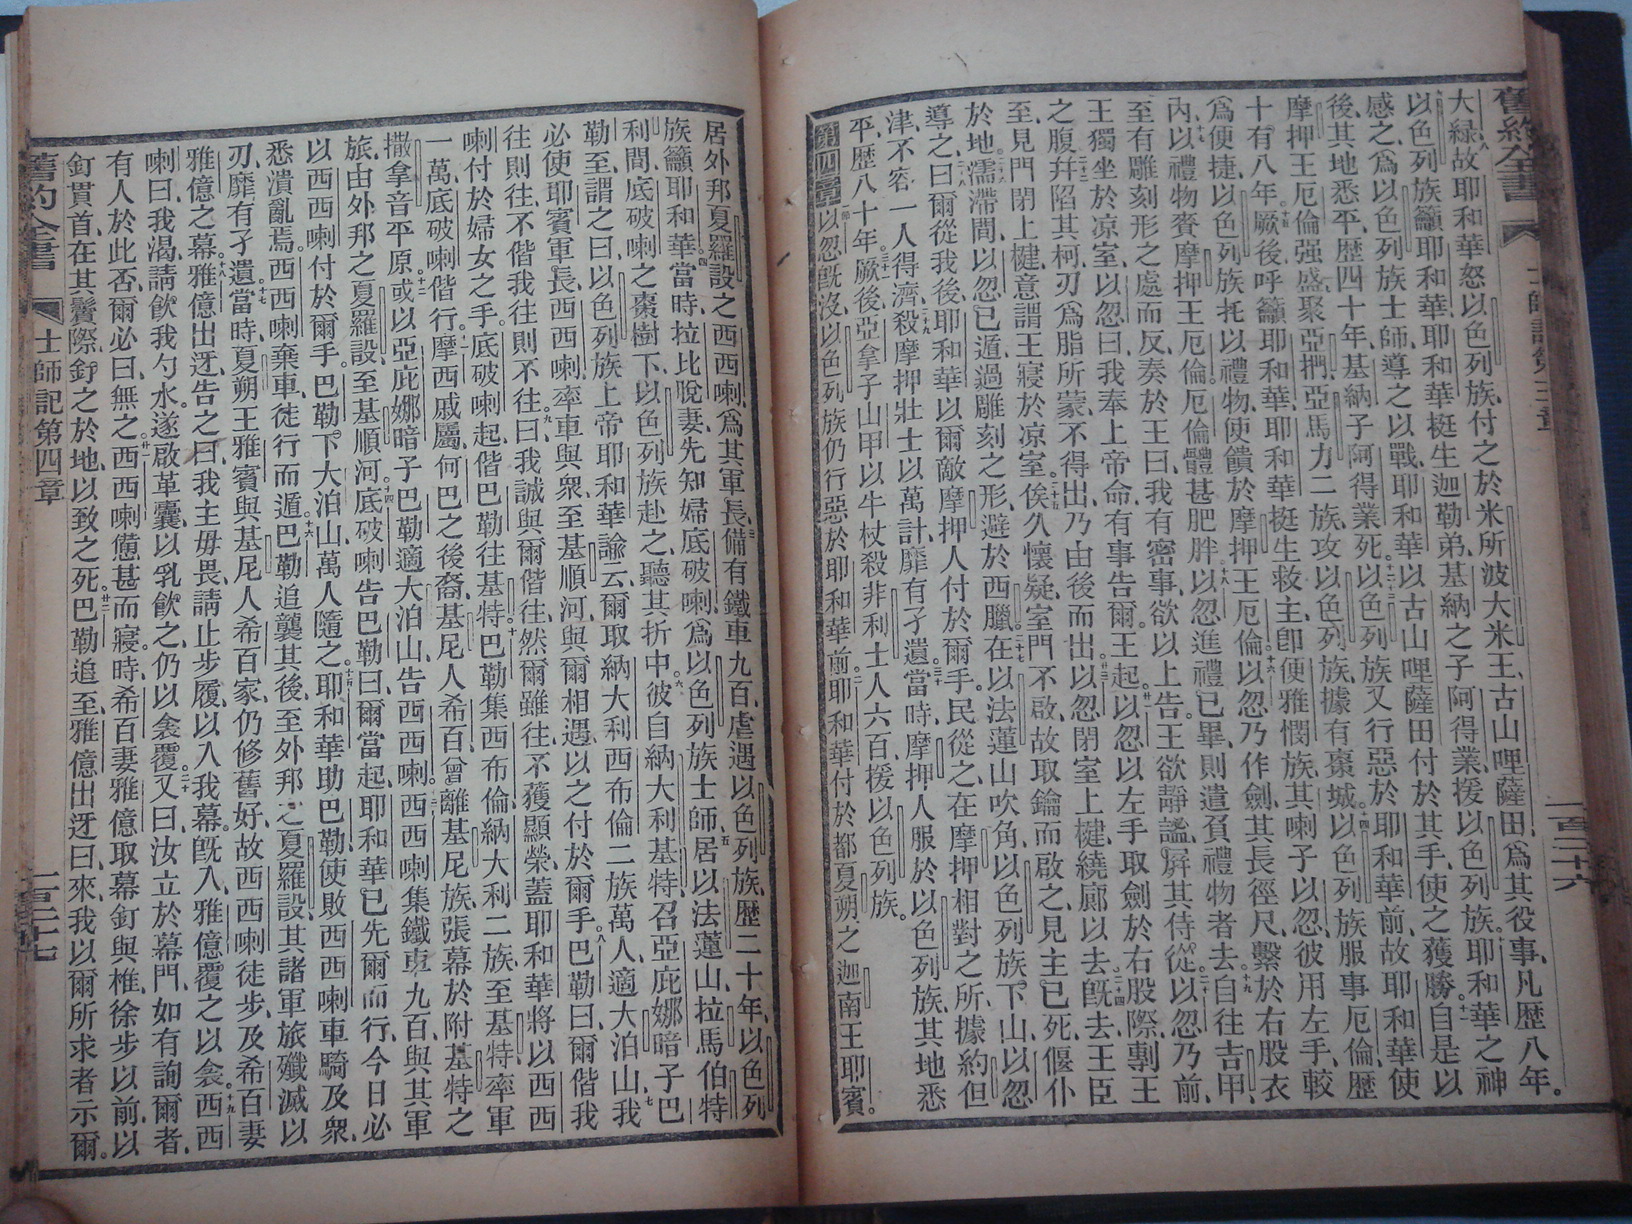 舊約全書 士師記第三章 一百三十六
大緑故耶和華怒以色列族付之於米所波大米王古山哩薩田爲其役事凡歴八年
以色列族籲耶和華耶和華挺生迦勒弟基納之子阿得業援以色列族耶和華之神
感之爲以色列族士師導之以戰耶和華以古山哩薩田付於其手使之獲勝自是以
後其地悉平歴四十年基納子阿得業死以色列族又行惡於耶和華前故耶和華使
摩押王厄倫强盛聚亞捫亞馬力二族攻以色列族據有棗城以色列族服事厄倫歴
十有八年厥後呼籲耶和華耶和華挺生救主卽便雅憫族其喇子以忽彼用左手較
爲便捷以色列族托以禮物使饋於摩押王厄倫以忽乃作劍其長徑尺繫於右股衣
內以禮物賷摩押王厄倫厄倫體甚肥胖以忽進禮已畢則遣負禮物者去自往吉甲
至有雕刻形之處而反奏於王曰我有密事欲以上告王欲靜謐屛其侍從以忽乃前
王獨坐於凉室以忽曰我奉上帝命有事告爾王起以忽以左手取劍於右股際剸王
之腹幷陷其柯刃爲脂所蒙不得出乃由後而出以忽閉室上楗繞廊以去旣去王臣
至見門閉上楗意謂王寢於凉室俟久懷疑室門不啟故取鑰而啟之見主已死偃仆
於地濡滯間以忽已遁過雕刻之形避於西臘在以法蓮山吹角以色列族下山以忽
導之曰爾從我後耶和華以爾敵摩押人付於爾手民從之在摩押相對之所據約但
津不容一人得濟殺摩押壯士以萬計靡有孑遺當時摩押人服於以色列族其地悉
平歴八十年厥後亞拿子山甲以牛杖殺非利士人六百援以色列族
第四章 以忽旣沒以色列族仍行惡於耶和華前耶和華付於都夏朔之迦南王耶賓
居外邦夏羅設之西西喇爲其軍長備有鐵車九百虐遇以色列族歴二十年以色列
族籲耶和華當時拉比脫妻先知婦底破喇爲以色列族士師居以法蓮山拉馬伯特
利間底破喇之棗樹下以色列族赴之聽其折中彼自納大利基特召亞庇娜暗子巴
勒至謂之曰以色列族上帝耶和華諭云爾取納大利西布倫二族萬人適大泊山我
必使耶賓軍長西西喇率車與衆至基順河與爾相遇以之付於爾手巴勒曰爾偕我
往則往不偕我往則不往曰我誠與爾偕往然爾雖往不獲顯榮蓋耶和華將以西西
喇付於婦女之手底破喇起偕巴勒往基特巴勒集西布倫納大利二族至基特率軍
一萬底破喇偕行摩西戚屬何巴之後裔基尼人希百曾離基尼族張幕於附基特之
撒拿音平原或以亞庇娜暗子巴勒適大泊山告西西喇西西喇集鐵車九百與其軍
旅由外邦之夏羅設至基順河底破喇告巴勒曰爾當起耶和華已先爾而行今日必
以西西喇付於爾手巴勒下大泊山萬人隨之耶和華助巴勒使敗西西喇車騎及衆
悉潰亂焉西西喇棄車徒行而遁巴勒追襲其後至外邦之夏羅設其諸軍旅殲滅以
刃靡有孑遺當時夏朔王雅賓與基尼人希百家仍修舊好故西西喇徒步及希百妻
雅億之幕雅億出迓告之曰我主毋畏請止步履以入我幕旣入雅億覆之以衾西西
喇曰我渴請飮我勺水遂啟革囊以乳飮之仍以衾覆又曰汝立於幕門如有詢爾者
有人於此否爾必曰無之西西喇憊甚而寢時希百妻雅億取幕釘與椎徐步以前以
釘貫首在其鬢際釘之於地以致之死巴勒追至雅億出迓曰來我以爾所求者示爾
舊約全書 士師記第四章 一百三十七